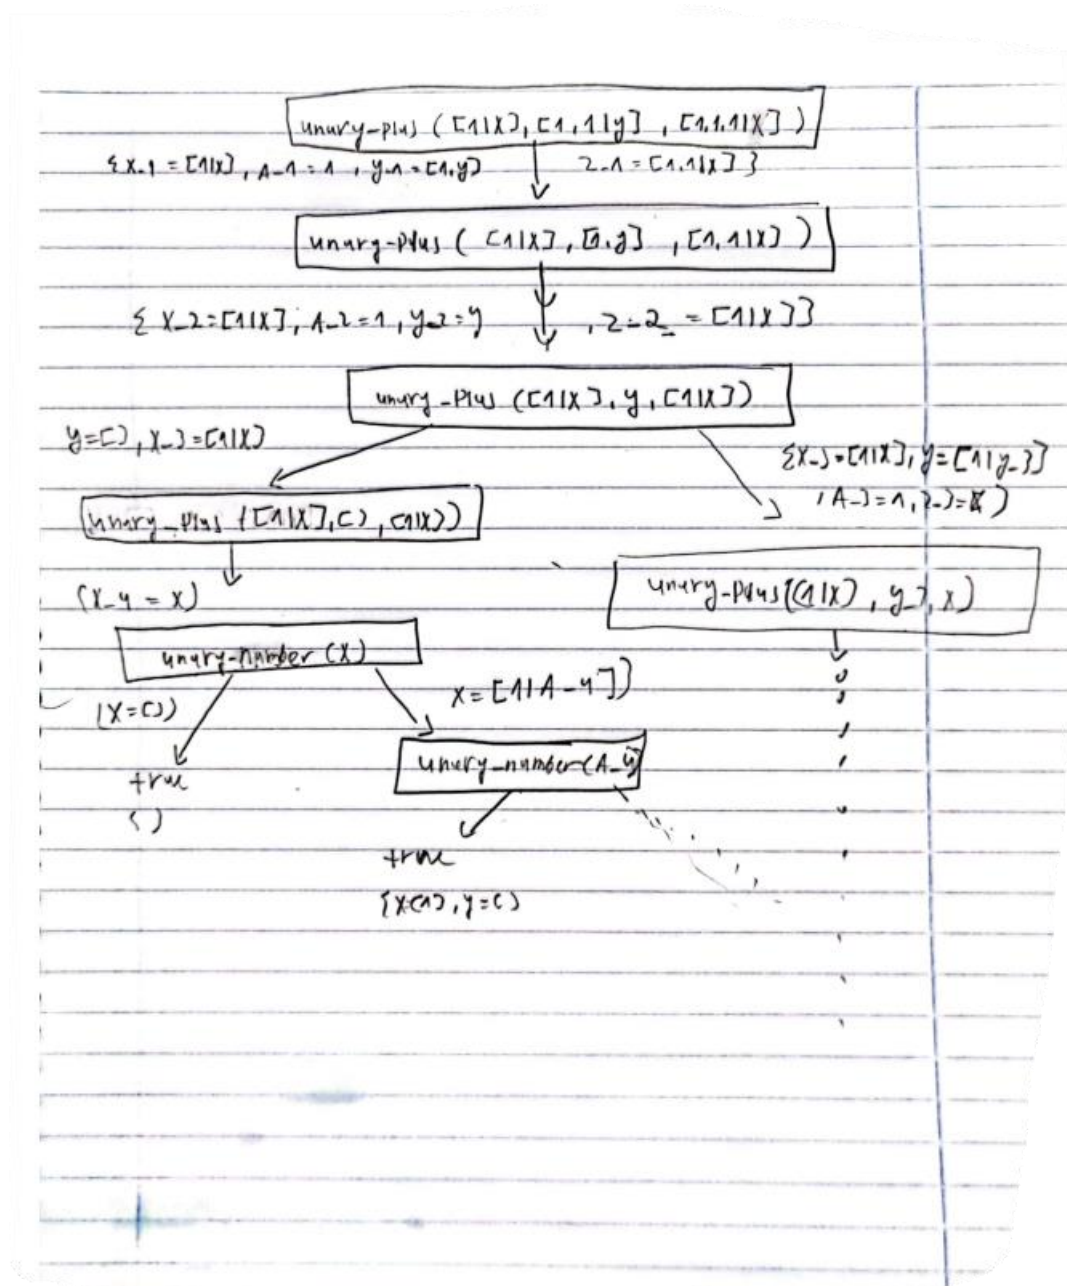 unary-plus ([1|X], [1,1|y] , [1,1,1|X] )
{X_1 = [1|X], A_1 = 1 , y_1 = [1,y] Z_1 = [1,1|X] }
unary-plus ( [1|X], [1,y] , [1,1|X] )
{ X_2=[1|X], A_2=1, y_2=y , Z_2 = [1|X] }
unary_plus ([1|X], y, [1|X])
y=[], X_3=[1|X]
{X_3=[1|X], y=[1|y_3]
, A_3=1, Z_3=X )
unary_plus ([1|X], [], [1|X])
unary-plus([1|X) , y_3, X)
(X_4 = X)
unary-number (X)
X = [1|A_4])
(X=[])
unary_number(A_4)
true
{}
true
{X=[1], y=[)